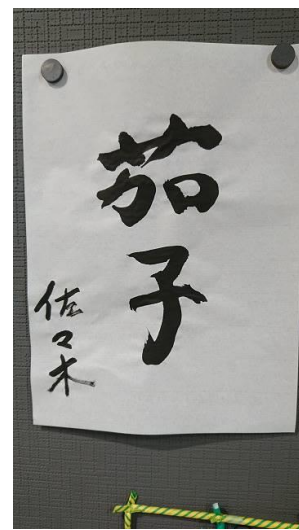 茄子
佐々木